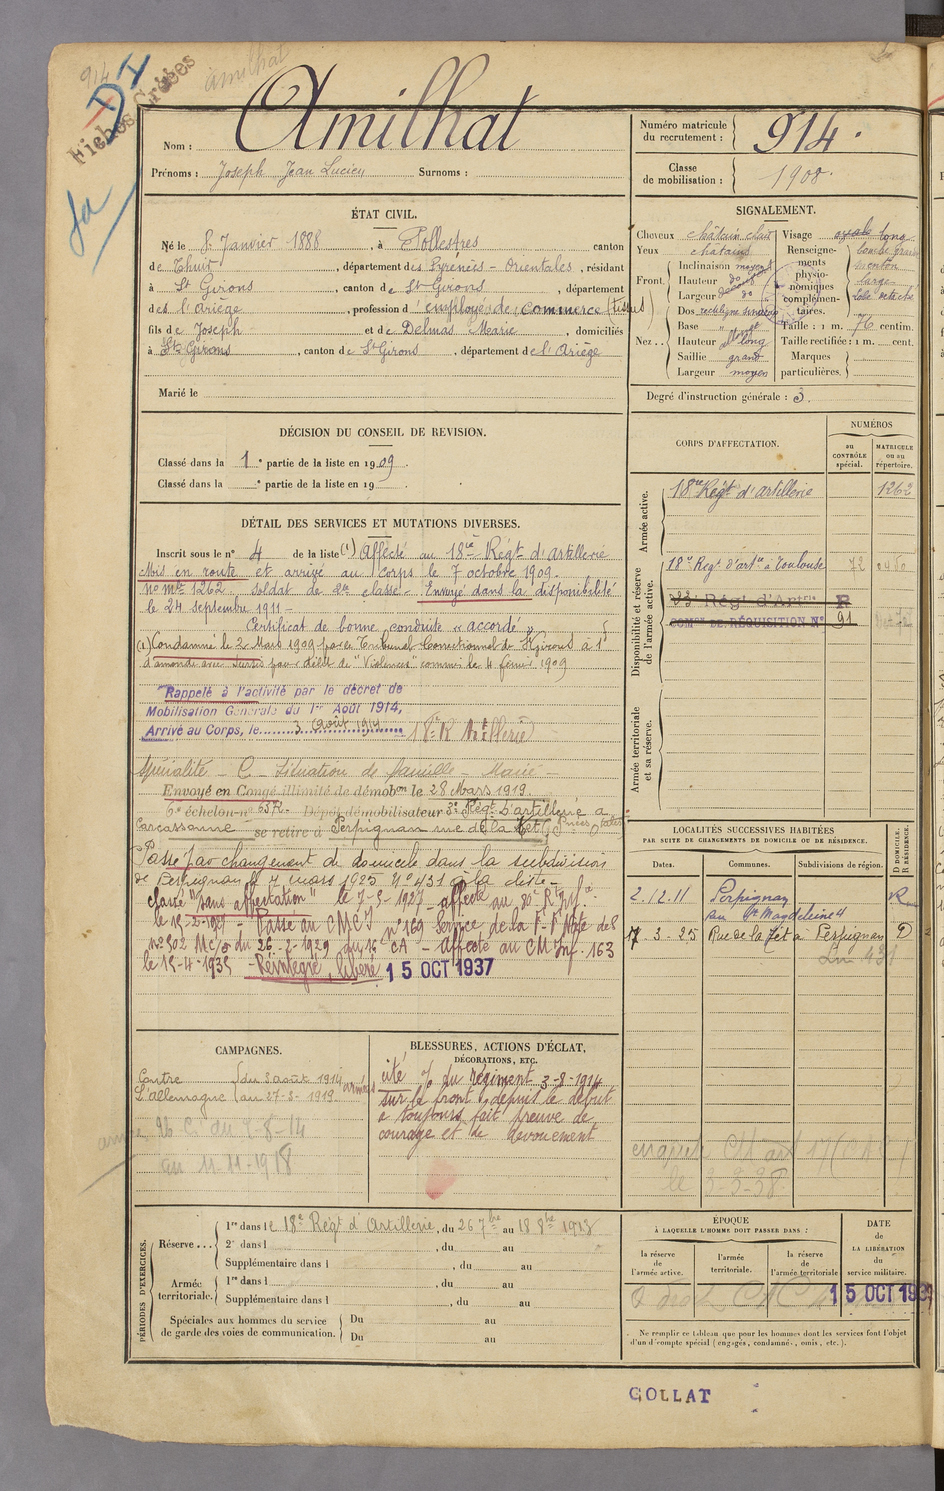 914
amilhat
DI
Fiches Créées
Nom : Amilhat
Prénoms : Joseph Jean Lucien Surnoms :
Numéro matricule du recrutement : 914.
Classe de mobilisation : 1908.
ÉTAT CIVIL.
Né le 8 Janvier 1888, à Pollestres canton
de Thuir, département des Pyrénées-Orientales, résidant
à St Girons, canton de St Girons, département
des l'ariège, profession d'employé de commerce (tissus)
fils de Joseph et de Delmas Marie, domiciliés
à St Girons, canton de St Girons, département de l'Ariège
Marié le
SIGNALEMENT.
Cheveux châtain clair
Yeux châtains
Front. Inclinaison moyen
Hauteur do
Largeur do
Nez.. Dos rectiligne sinueux
Base
Hauteur long
Saillie grand
Largeur moyen
Visage long
Renseignements physionomiques complémentaires.
menton
large
Taille : 1 m. 76 centim.
Taille rectifiée : 1 m. cent.
Marques particulières.
Degré d'instruction générale : 3.
DÉCISION DU CONSEIL DE REVISION.
Classé dans la 1e partie de la liste en 1909.
Classé dans la e partie de la liste en 19
DÉTAIL DES SERVICES ET MUTATIONS DIVERSES.
Inscrit sous le n° 4 de la liste (1) Affecté au 18ie Régt d'artillerie
Mis en route et arrivé au corps le 7 octobre 1909.
n° mle 1262, soldat de 2e classe - Envoyé dans la disponibilité
le 24 septembre 1911 -
Certificat de bonne conduite « accordé »
(1) Condamné le 2 Mars 1909 par le Tribunal Correctionnel de St Girons à 1f
d'amende avec sursis pour délit de "Violences" commis le 4 février 1909
Rappelé à l'activité par le décret de
Mobilisation Générale du 1er Août 1914,
Arrivé au Corps, le 3 août 1914 18e R Artillerie
Spécialité - C - Situation de famille - Marié -
Envoyé en Congé illimité de démobon le 28 Mars 1919.
6e échelon n° Dépôt démobilisateur 3e Régt d'artillerie à
Carcassonne se retire à Perpignan rue de la Têt
Passé par changement de domicile dans la subdivision
de Perpignan le 7 mars 1925 N° 431 à la liste -
classé "sans affectation" le 7-5-1927 affecté au
le 15-2-1928 - Passé au CMCI n° 169 Service de la
n° 302 Mc/s du 26-2-1929 du 16 CA - Affecté au CM Inf. 163
le 15-4-1935 - Réintégré, libéré 15 OCT 1937
CORPS D'AFFECTATION.
NUMÉROS
au CONTRÔLE spécial.
MATRICULE ou au répertoire.
Armée active.
18e Régt d'artillerie 1262
Disponibilité et réserve de l'armée active.
18e Regt d'arte à Toulouse 72
Régt d'Artrie R
COMon DE RÉQUISITION N° 91
Armée territoriale et sa réserve.
LOCALITÉS SUCCESSIVES HABITÉES
PAR SUITE DE CHANGEMENTS DE DOMICILE OU DE RÉSIDENCE.
Dates. Communes. Subdivisions de région. D DOMICILE. R RÉSIDENCE.
2.12.11 Perpignan R
17-3-25 Rue de la Têt à Perpignan D
CAMPAGNES.
Contre l'allemagne
du 3 août 1914
au 27-3-1919
au 11-11-1918
BLESSURES, ACTIONS D'ÉCLAT,
DÉCORATIONS, ETC.
cité o/ du régiment 3-8-1914
sur le front depuis le début
a toujours fait preuve de
courage et de dévouement
le 3-3-38
PÉRIODES D'EXERCICES.
Réserve... 1re dans le 18e Régt d'Artillerie, du 26 7bre au 18 8bre 1913
2e dans l , du au
Supplémentaire dans l , du au
Armée territoriale. 1re dans l , du au
Supplémentaire dans l , du au
Spéciales aux hommes du service de garde des voies de communication. Du au
Du au
ÉPOQUE
À LAQUELLE L'HOMME DOIT PASSER DANS :
la réserve de l'armée active.
l'armée territoriale.
la réserve de l'armée territoriale
DATE de LA LIBÉRATION du service militaire.
15 OCT 1937
Ne remplir ce tableau que pour les hommes dont les services font l'objet
d'un décompte spécial (engagés, condamnés, omis, etc.).
COLLAT